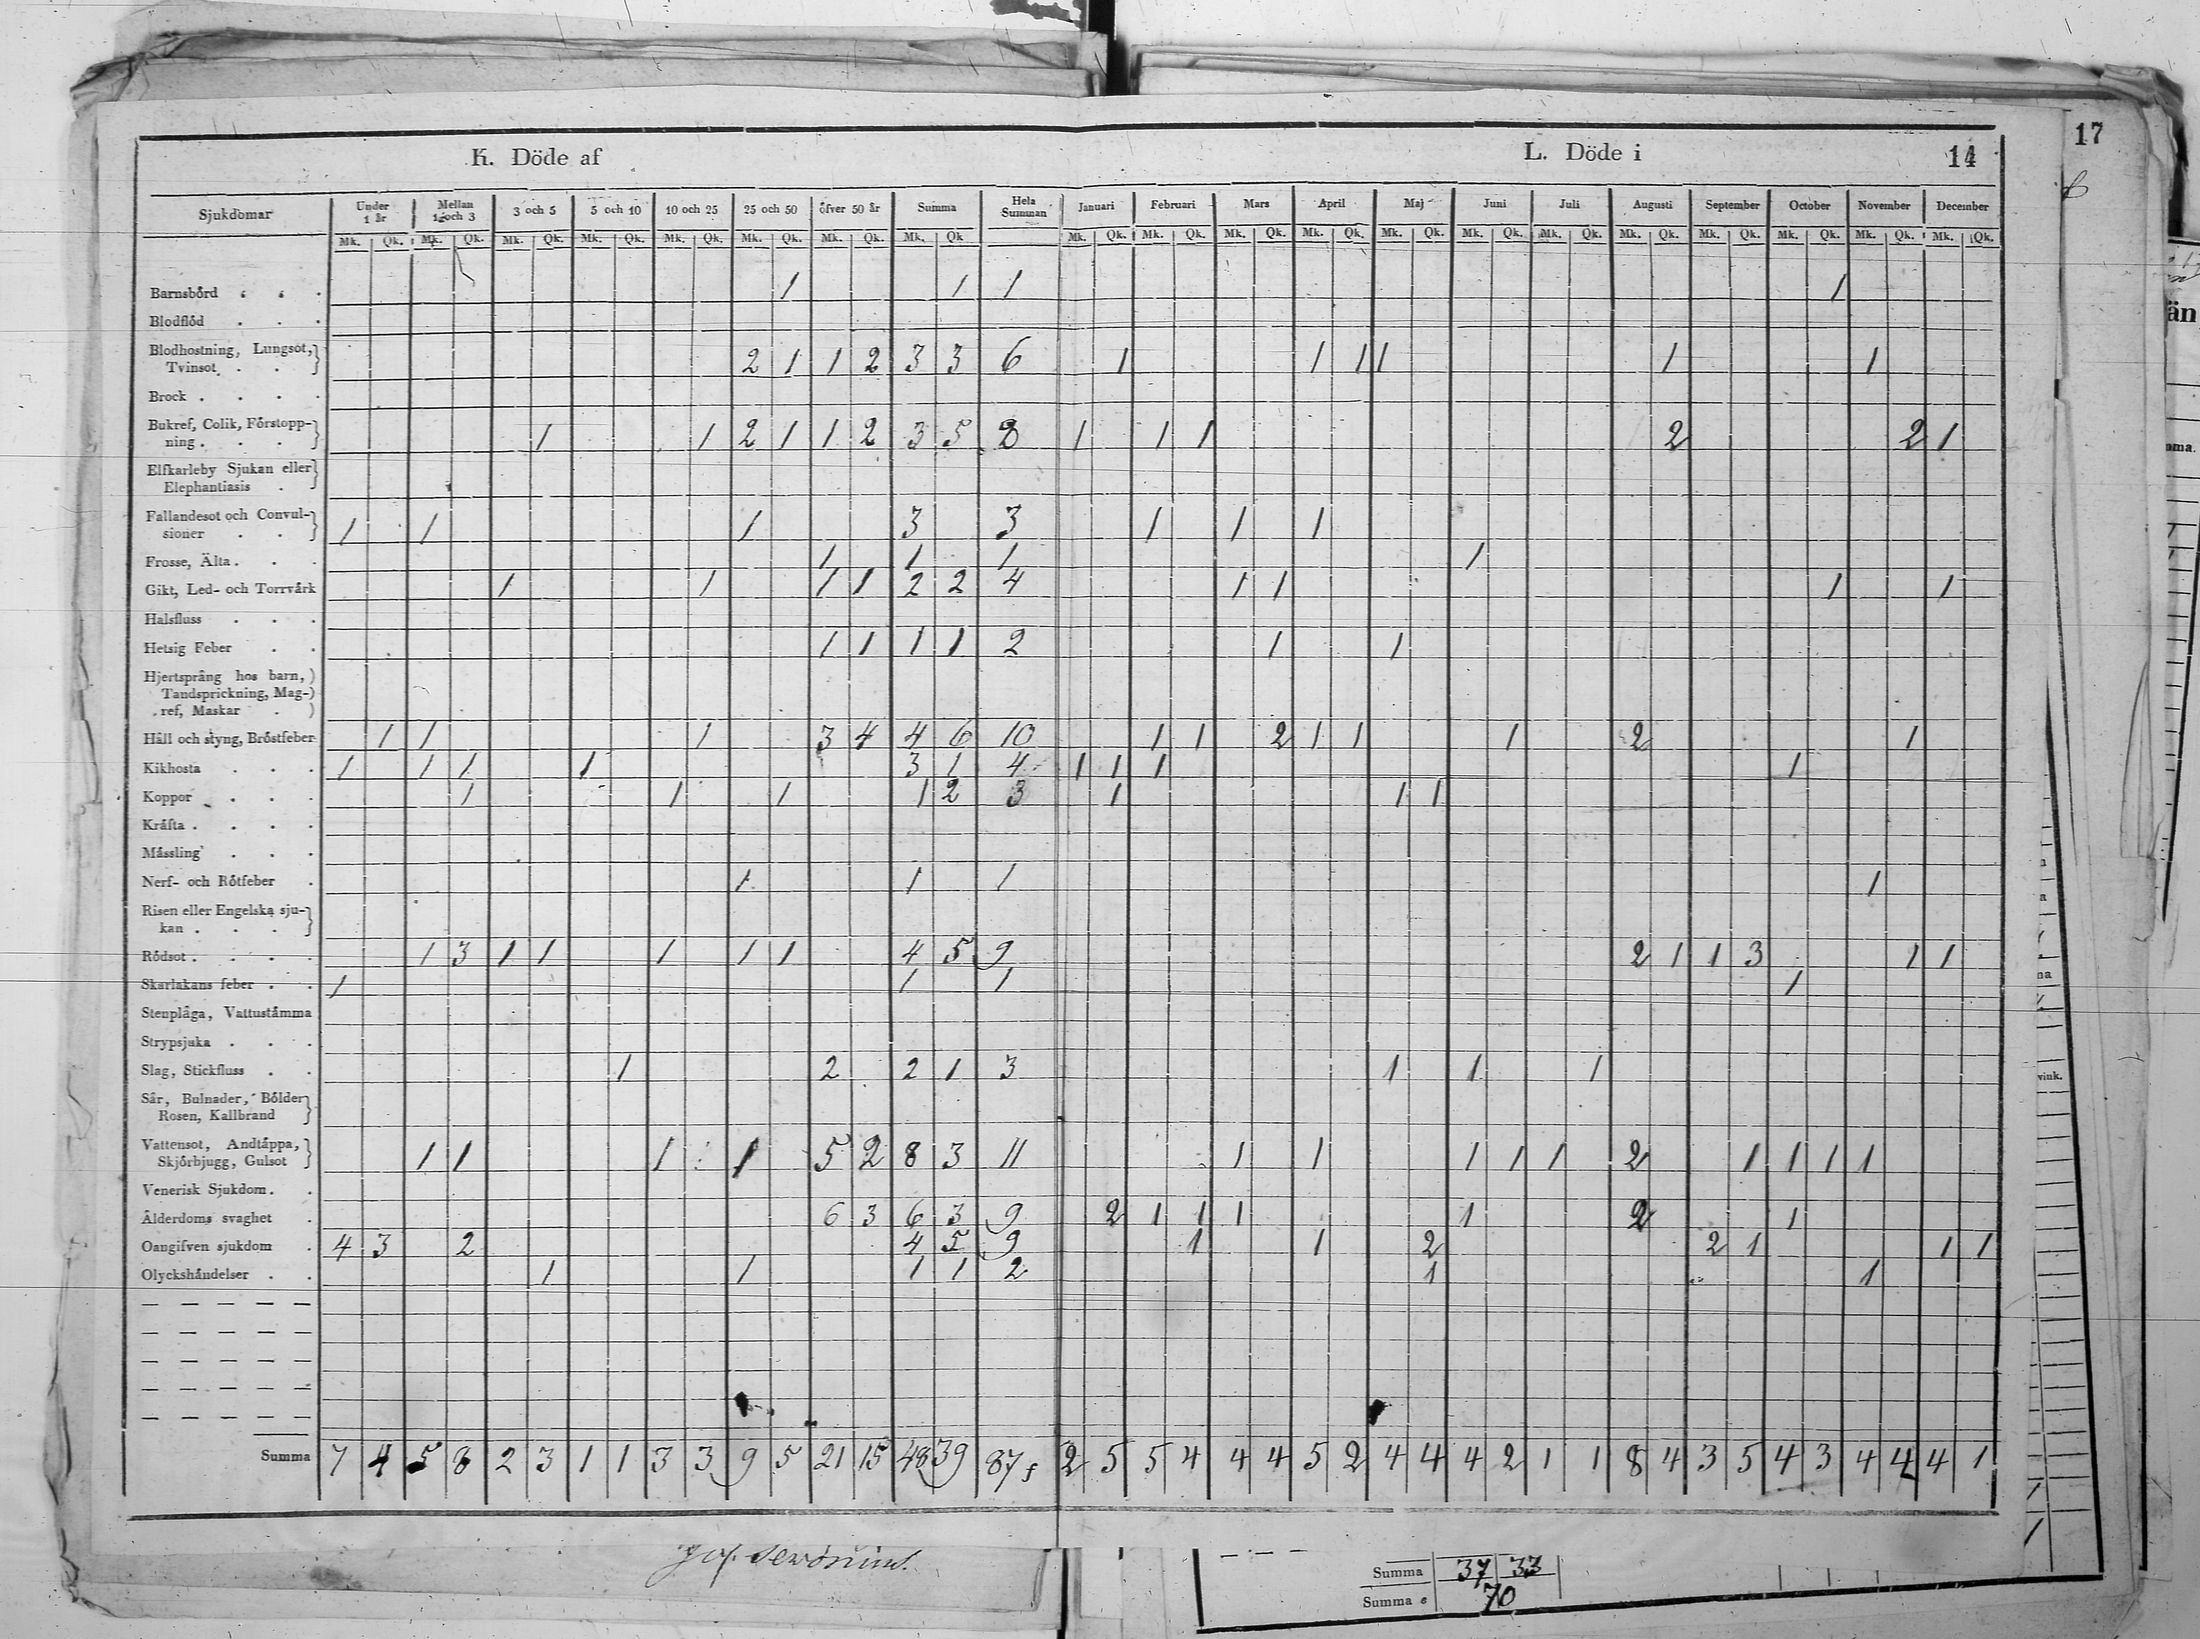 17
K. Döde af
L. Döde i
14
Sjukdomar Under 1 år Mellan 1 och 3 3 och 5 5 och 10 10 och 25 25 och 50 öfver 50 år Summa Hela Summan Januari Februari Mars April Maj Juni Juli Augusti September October November December
Mk. Qk. Mk. Qk. Mk. Qk. Mk. Qk. Mk. Qk. Mk. Qk. Mk. Qk. Mk. Qk Mk. Qk. Mk. Qk. Mk. Qk. Mk. Qk. Mk. Qk. Mk. Qk. Mk. Qk. Mk. Qk. Mk. Qk. Mk. Qk. Mk. Qk. Mk. Qk.
Barnsbörd 1 1 1 1
Blodflöd
Blodhostning, Lungsot,
Tvinsot 2 1 1 2 3 3 6 1 1 1 1 1 1
Brock
Bukref, Colik, Förstopp-
ning 1 1 2 1 1 2 3 5 8 1 1 1 2 2 1
Elfkarleby Sjukan eller
Elephantiasis
Fallandesot och Convul-
sioner 1 1 1 3 3 1 1 1
Frosse, Älta 1 1 1 1
Gikt, Led- och Torrvärk 1 1 1 1 2 2 4 1 1 1 1
Halsfluss
Hetsig Feber 1 1 1 1 2 1 1
Hjertsprång hos barn,
Tandsprickning, Mag-
ref, Maskar
Håll och styng, Bröstfeber 1 1 1 3 4 4 6 10 1 1 2 1 1 1 2 1
Kikhosta 1 1 1 1 3 1 4 1 1 1 1
Koppor 1 1 1 1 2 3 1 1 1
Kräfta
Mässling
Nerf- och Rötfeber 1 1 1 1
Risen eller Engelska sju-
kan
Rödsot 1 3 1 1 1 1 1 4 5 9 2 1 1 3 1 1
Skarlakans feber 1 1 1 1
Stenplåga, Vattustämma
Strypsjuka
Slag, Stickfluss 1 2 2 1 3 1 1 1
Sår, Bulnader, Bölder
Rosen, Kallbrand
Vattensot, Andtäppa,
Skjörbjugg, Gulsot 1 1 1 1 5 2 8 3 11 1 1 1 1 1 2 1 1 1 1
Venerisk Sjukdom
Ålderdoms svaghet 6 3 6 3 9 2 1 1 1 1 2 1
Oangifven sjukdom 4 3 2 4 5 9 1 1 2 2 1 1 1
Olyckshändelser 1 1 1 1 2 1 1
Summa 7 4 5 8 2 3 1 1 3 3 9 5 21 15 48 39 87 2 5 5 4 4 4 5 2 4 4 4 2 1 1 8 4 3 5 4 3 4 4 4 1
Summa 37 33
Summa 70
än
vink.